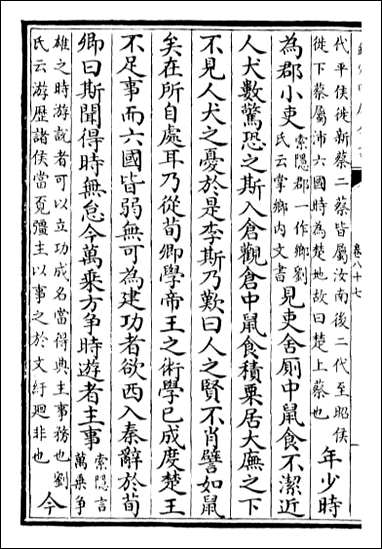 卷八十七
代平侯徙新蔡二蔡皆屬汝南後二代至昭侯
徙下蔡屬沛六國時為楚地故曰楚上蔡也
年少時
為郡小吏
索隱郡一作鄉劉
氏云掌鄉内文書
見吏舍厠中鼠食不潔近
人犬數驚恐之斯入倉觀倉中鼠食積粟居大廡之下
不見人犬之憂於是李斯乃歎曰人之賢不肖譬如鼠
矣在所自處耳乃從荀卿學帝王之術學已成度楚王
不足事而六國皆弱無可為建功者欲西入秦辭於荀
卿曰斯聞得時無怠今萬乗方争時遊者主事
索隱言
萬乗争
雄之時游說者可以立功成名當得典主事務也劉
氏云游歷諸侯當覓彊主以事之於文紆廻非也
今